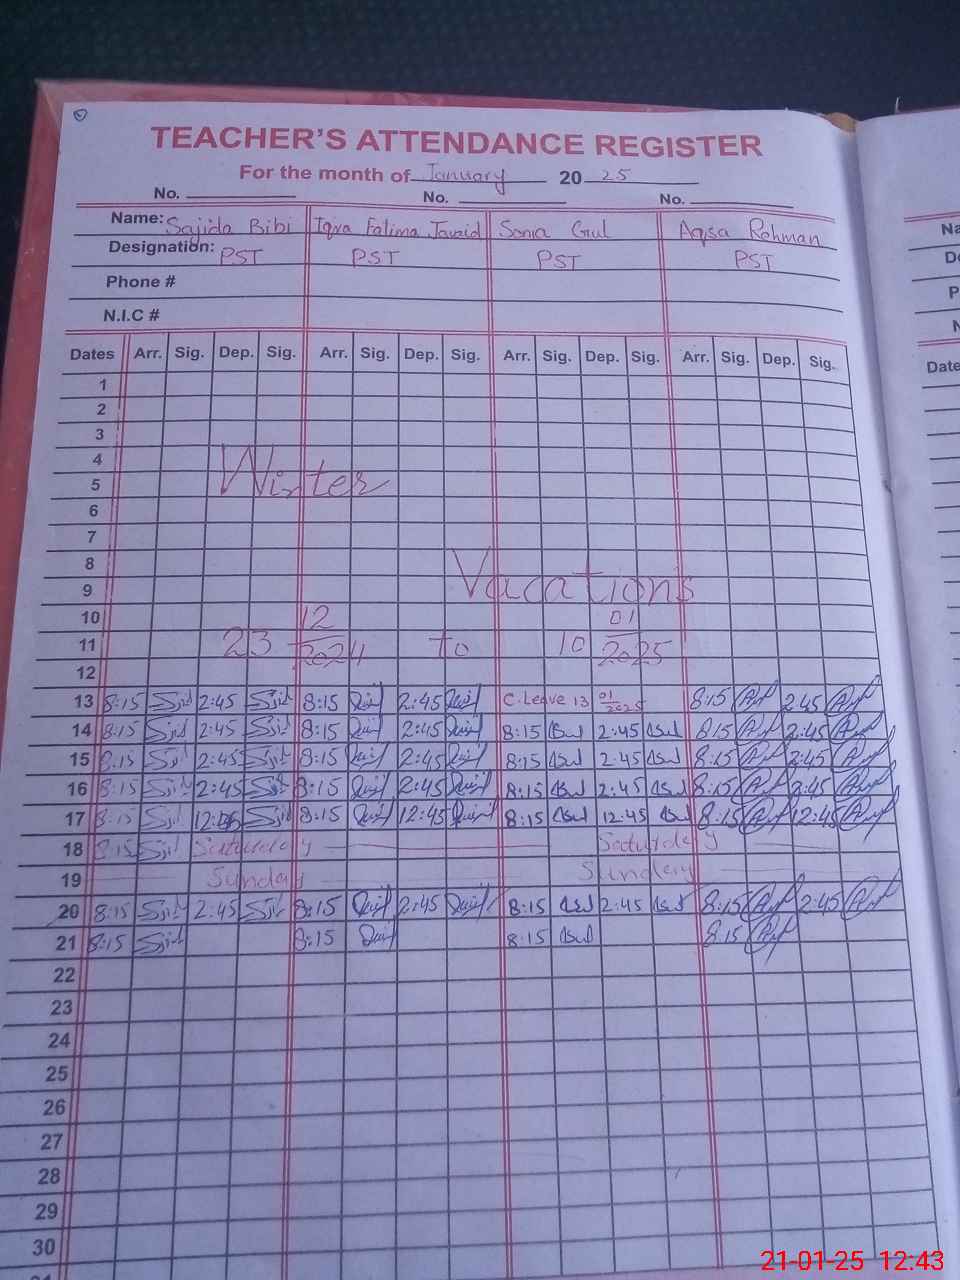 TEACHER'S ATTENDANCE REGISTER
For the month of January 20 25
No. No. No.
Name: Sajida Bibi Iqra Fatima Javaid Sonia Gul Aqsa Rehman
Designation: PST PST PST PST
Phone #
N.I.C #
Dates Arr. Sig. Dep. Sig. Arr. Sig. Dep. Sig. Arr. Sig. Dep. Sig. Arr. Sig. Dep. Sig.
1
2
3
4
5
Winter
6
7
8
9
Vacations
10
11
23 12/2024 to 10 01/2025
12
13 8:15 2:45 8:15 2:45 C.Leave 13 01/2025 8:15 2:45
14 8:15 2:45 8:15 2:45 8:15 2:45 8:15 2:45
15 8:15 2:45 8:15 2:45 8:15 2:45 8:15 2:45
16 8:15 2:45 8:15 2:45 8:15 2:45 8:15 2:45
17 8:15 8:15 12:45 8:15 12:45 8:15 12:45
18 8:15 Saturday Saturday
19 Sunday Sunday
20 8:15 2:45 8:15 2:45 8:15 2:45 8:15 2:45
21 8:15 8:15 8:15 8:15
22
23
24
25
26
27
28
29
30
Na
De
P
N
Date
21-01-25 12:43